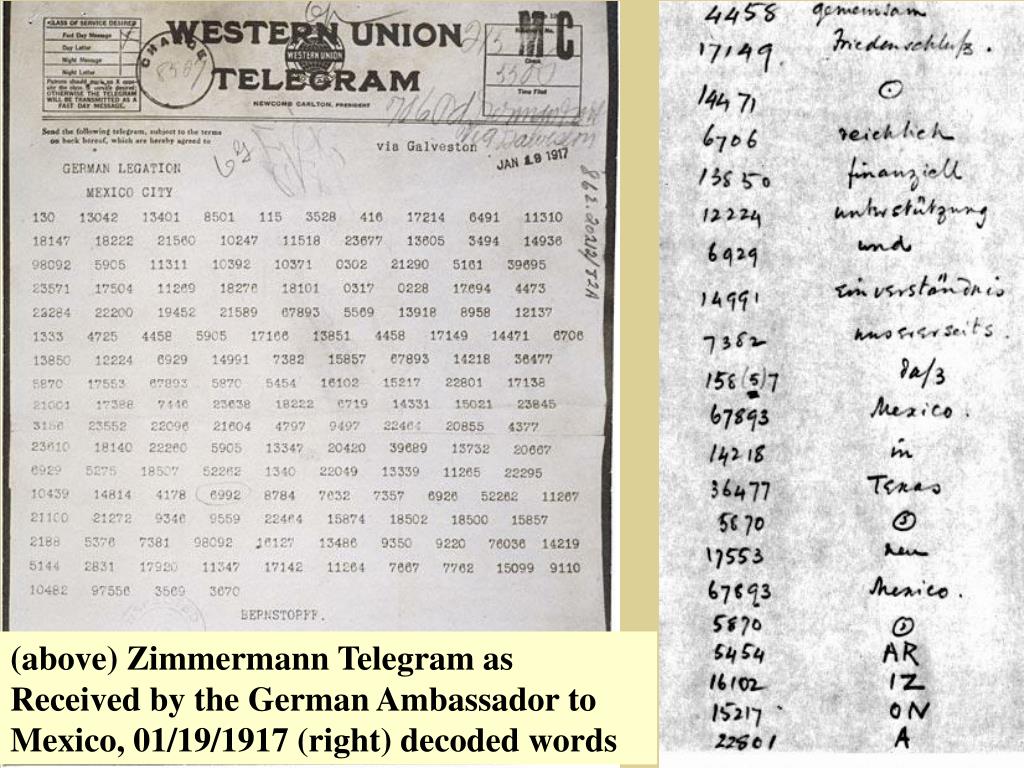 CLASS OF SERVICE DESIRED
Fast Day Message
Day Letter
Night Message
Night Letter
Patrons should mark an X oppo-
site the class of service desired;
OTHERWISE THE TELEGRAM
WILL BE TRANSMITTED AS A
FAST DAY MESSAGE.
CHARGE
WESTERN UNION
WESTERN UNION
TELEGRAM
NEWCOMB CARLTON, PRESIDENT
Check
Time Filed
Send the following telegram, subject to the terms
on back hereof, which are hereby agreed to
via Galveston
JAN 19 1917
GERMAN LEGATION
MEXICO CITY
130 13042 13401 8501 115 3528 416 17214 6491 11310
18147 18222 21560 10247 11518 23677 13605 3494 14936
98092 5905 11311 10392 10371 0302 21290 5161 39695
23571 17504 11269 18276 18101 0317 0228 17694 4473
22284 22200 19452 21589 67893 5569 13918 8958 12137
1333 4725 4458 5905 17166 13851 4458 17149 14471 6706
13850 12224 6929 14991 7382 15857 67893 14218 36477
5870 17553 67893 5870 5454 16102 15217 22801 17138
21001 17388 7446 23638 18222 6719 14331 15021 23845
3156 23552 22096 21604 4797 9497 22464 20855 4377
23610 18140 22260 5905 13347 20420 39689 13732 20667
6929 5275 18507 52262 1340 22049 13339 11265 22295
10439 14814 4178 6992 8784 7632 7357 6926 52262 11267
21100 21272 9346 9559 22464 15874 18502 18500 15857
2188 5376 7381 98092 16127 13486 9350 9220 76036 14219
5144 2831 17920 11347 17142 11264 7667 7762 15099 9110
10482 97556 3569 3670
BERNSTORFF.
(above) Zimmermann Telegram as
Received by the German Ambassador to
Mexico, 01/19/1917 (right) decoded words
4458 gemeinsam
17149. Friedenschluß.
14471 ⊙
6706 reichlich
13850 finanziell
12224 unterstützung
6929 und
14991 Einverständnis
7382 unsererseits.
158(5)7 daß
67893 Mexico.
14218 in
36477 Texas
5870
17553 neu
67893 Mexico.
5870
5454 AR
16102 IZ
15217 ON
22801 A